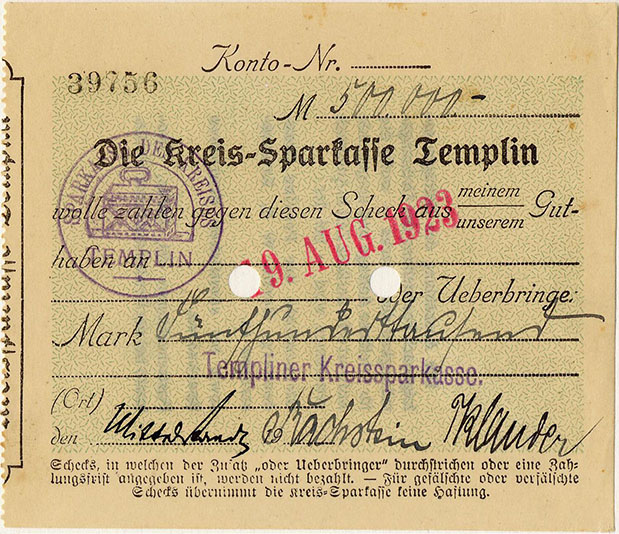 Konto-Nr.
39756
M 500.000-
Die Kreis-Sparkasse Templin
SPARKASSE DES KREISES
TEMPLIN
wolle zahlen gegen diesen Scheck aus meinem
unserem Gut-
haben an
19. AUG. 1923
oder Ueberbringer
Mark Fünfhunderttausend
Templiner Kreissparkasse.
(Ort)
den 19
Schecks, in welchen der Zusatz „oder Ueberbringer" durchstrichen oder eine Zah-
lungsfrist angegeben ist, werden nicht bezahlt. — Für gefälschte oder verfälschte
Schecks übernimmt die Kreis-Sparkasse keine Haftung.